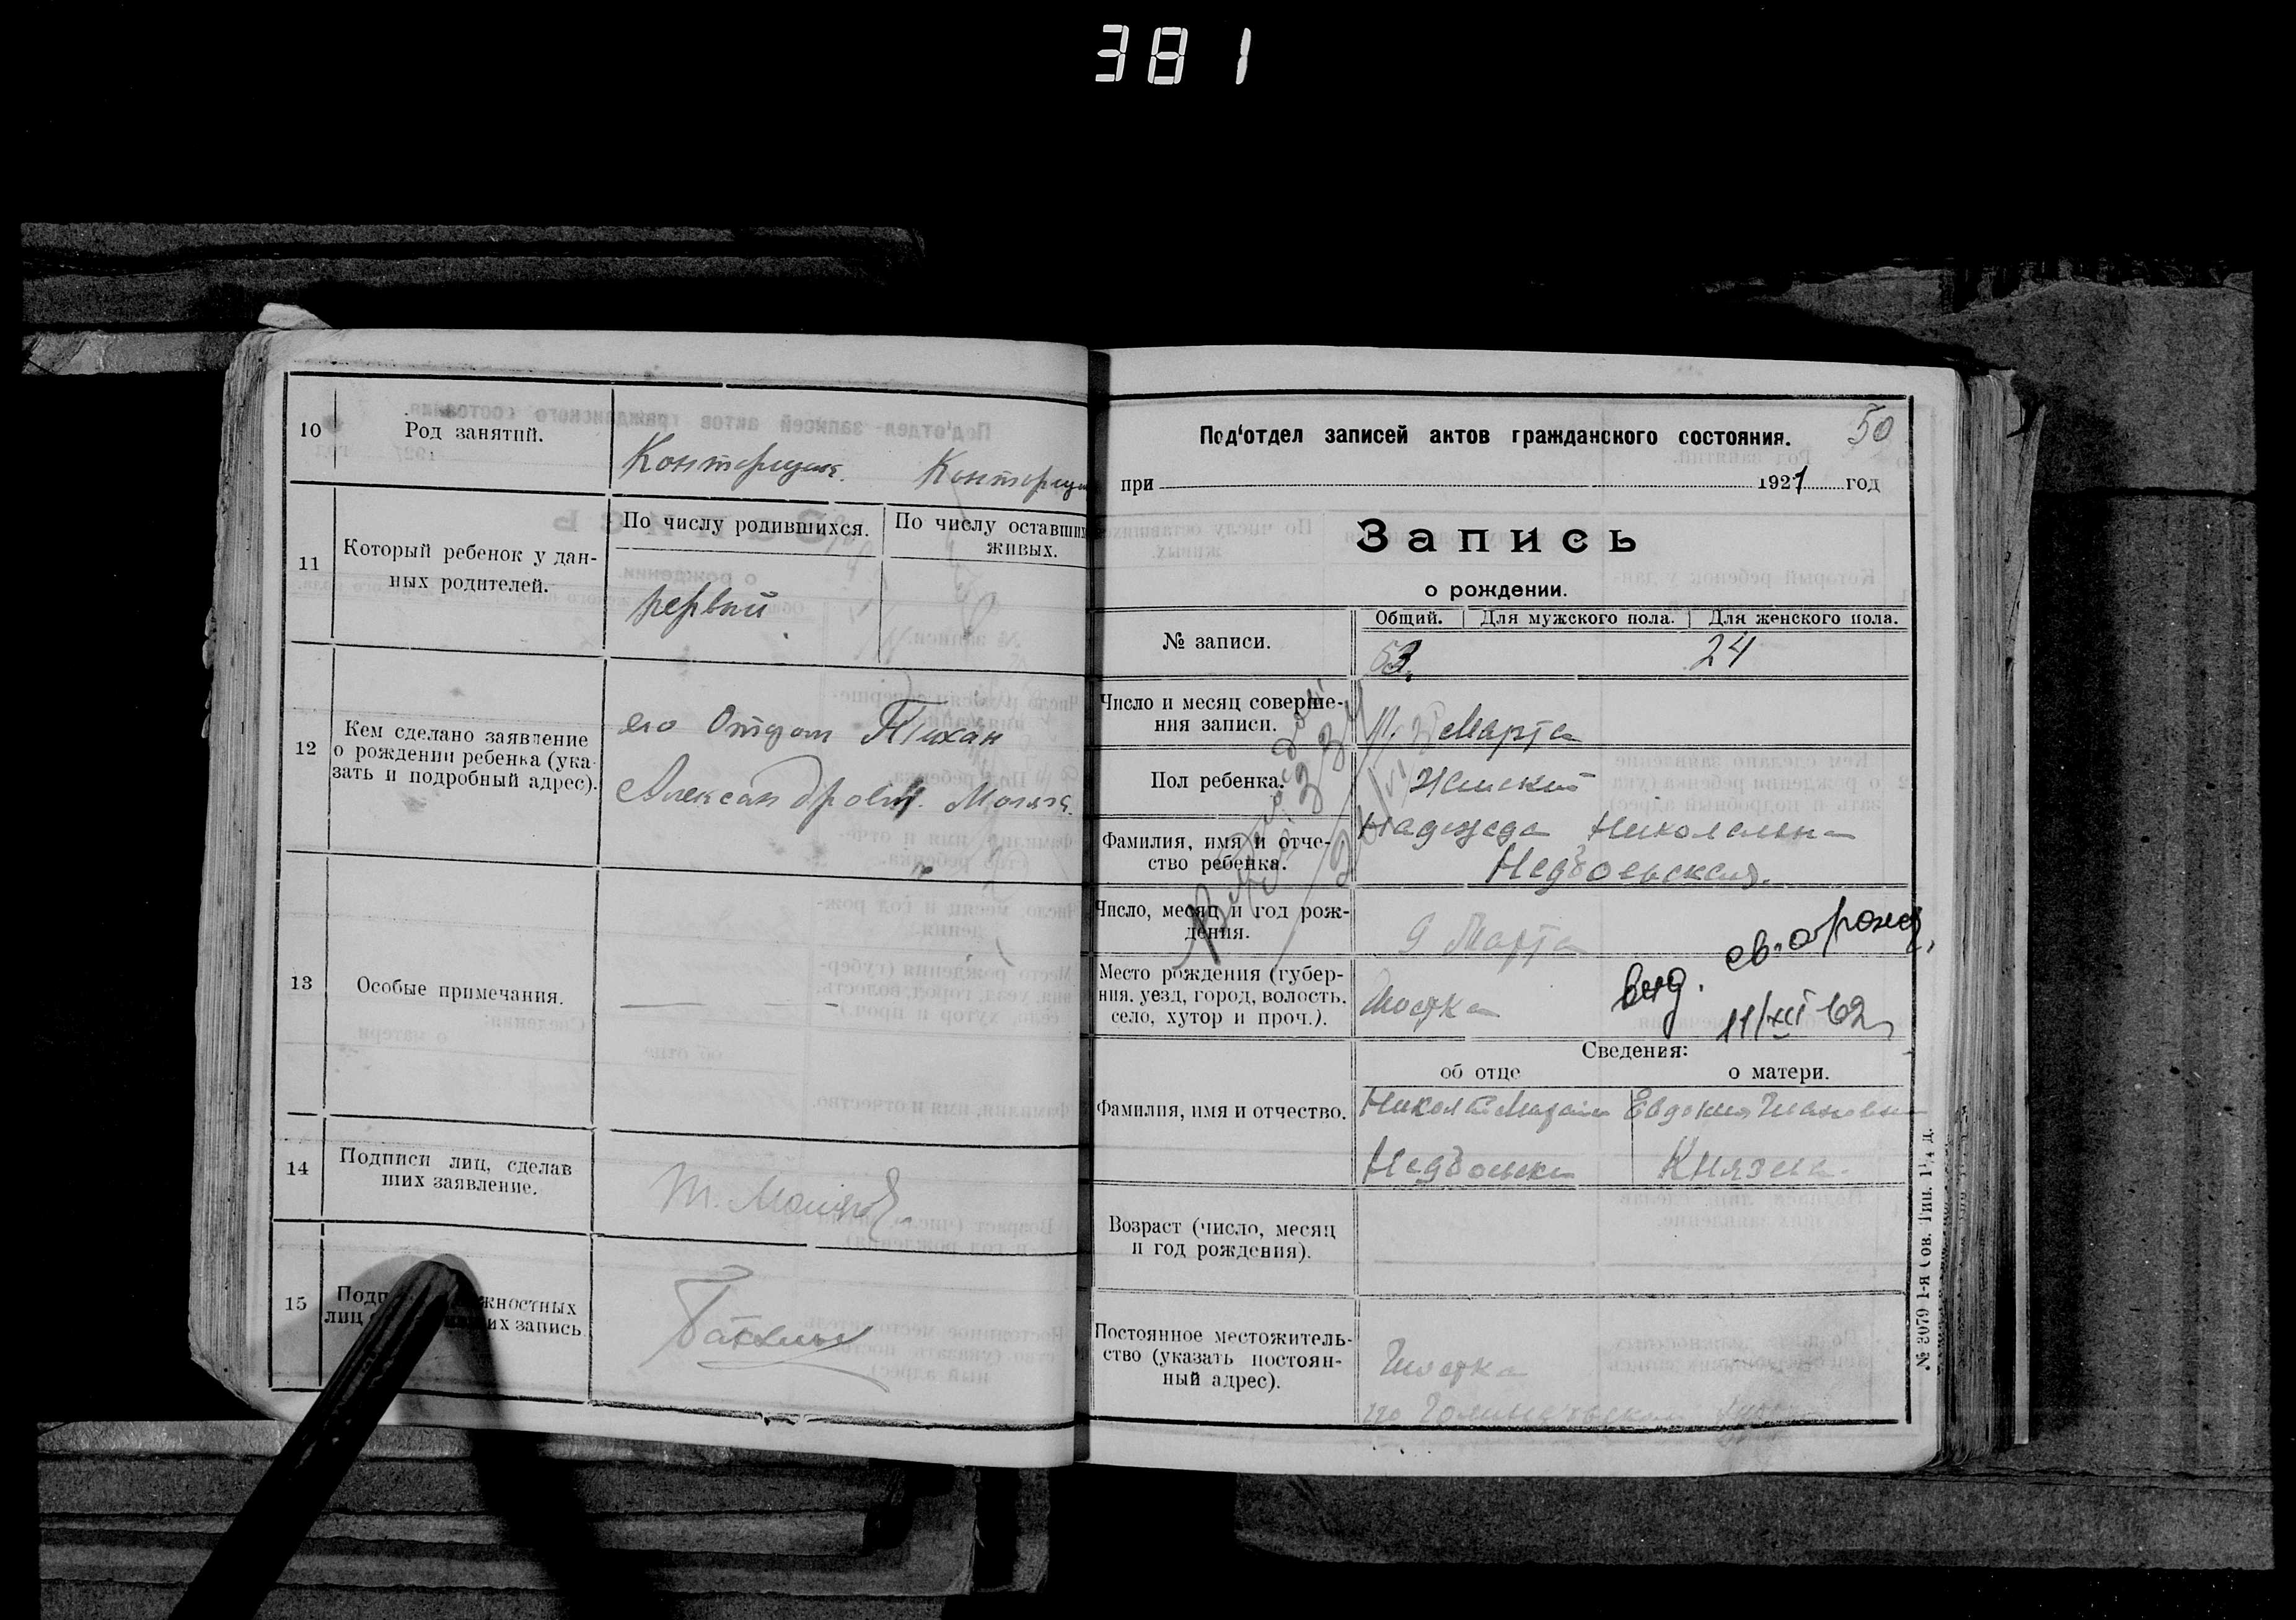 381
10
Род занятий.
Конторщик. Конторщи
11
Который ребенок у дан-
ных родителей.
По числу родившихся.
По числу оставших
живых.
первый
12
Кем сделано заявление
о рождении ребенка (ука-
зать и подробный адрес).
его Отцом Тихан
Александров.
13
Особые примечания.
14
Подписи лиц, сделав
ших заявление.
Т.
15
жностных
лиц их запись
Под'отдел записей актов гражданского состояния.
50
при 1921 год
Запись
о рождении.
№ записи.
Общий. Для мужского пола. Для женского пола.
53. 24
Число и месяц соверше-
ния записи.
Марта
Пол ребенка.
Женский
Фамилия, имя и отче-
ство ребенка.
Надежда Николаевна
Число, месяц и год рож-
дения.
9 Марта
выд. св. о рожд,
11/XII 62
Место рождения (губер-
ния. уезд, город, волость.
село, хутор и проч.).
Шостка
Сведения:
об отце
о матери.
Фамилия, имя и отчество.
Николай Евдокия Ивановна
Князева
Возраст (число, месяц
и год рождения).
Постоянное местожитель-
ство (указать постоян-
ный адрес).
Шостка
№ 3079 1-я Сов. Тип. 1¼ д.